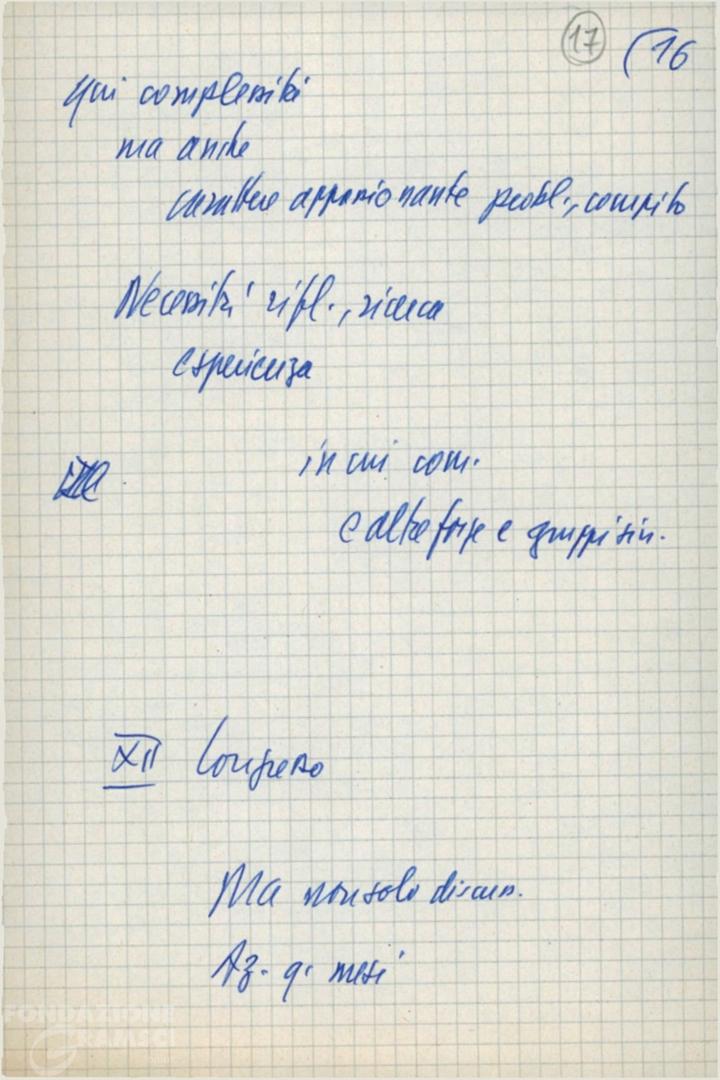 17 (16
Qui complessità
ma anche
carattere appassionante probl., compito
Necessità rifl., ricerca
esperienza
in cui com.
e altre forze e gruppi sin.
XII Congresso
Ma non solo discuss.
Az. q. mesi
FONDAZIONE
GRAMSCI